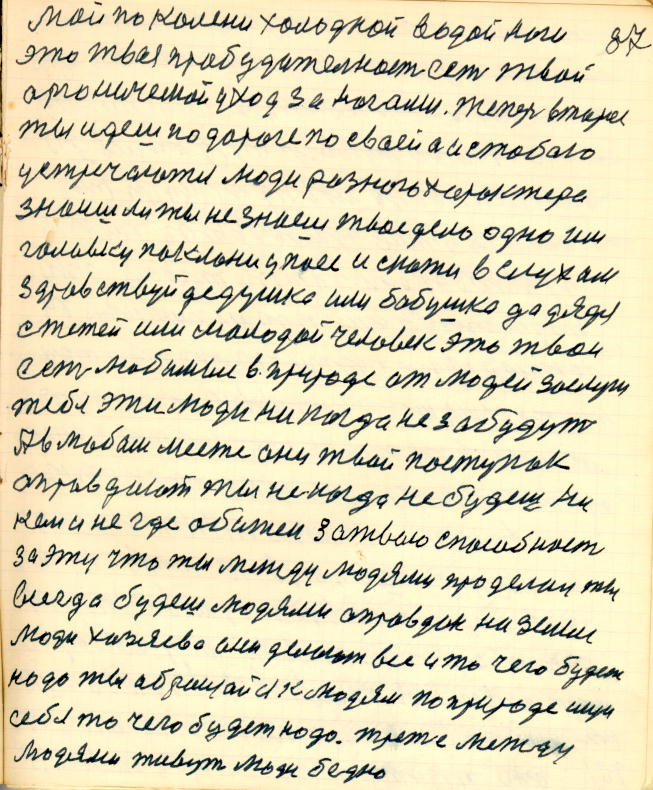 мой по колени холодной водой ноги 87
это твоя пробудителност сет твой
органической уход за ногами. Тепер втарое
ты идеш по дороге по своей а истобаго
устричаются люди разного характера
знаиш ли ты не знаеш твое дело одно им
головку поклони упосе и скажи вслух им
здравствуй дедушка или бабушка да дядя
стетей или молодой человек это твои
сет любимые в природе от людей заслуги
тебя эти люди никогда не забудут
А в любом месте они твой поступок
оправдают ты не когда не будеш ни
кем и не где обижен за твою способност
за эту что ты между людями проделаи ты
всегда будеш людями оправдан на земли
люди хозяева они делают все и то чего будет
надо ты обращайся к людям по природе ищи
себя то чего будет надо. трете между
людями живут люди бедно